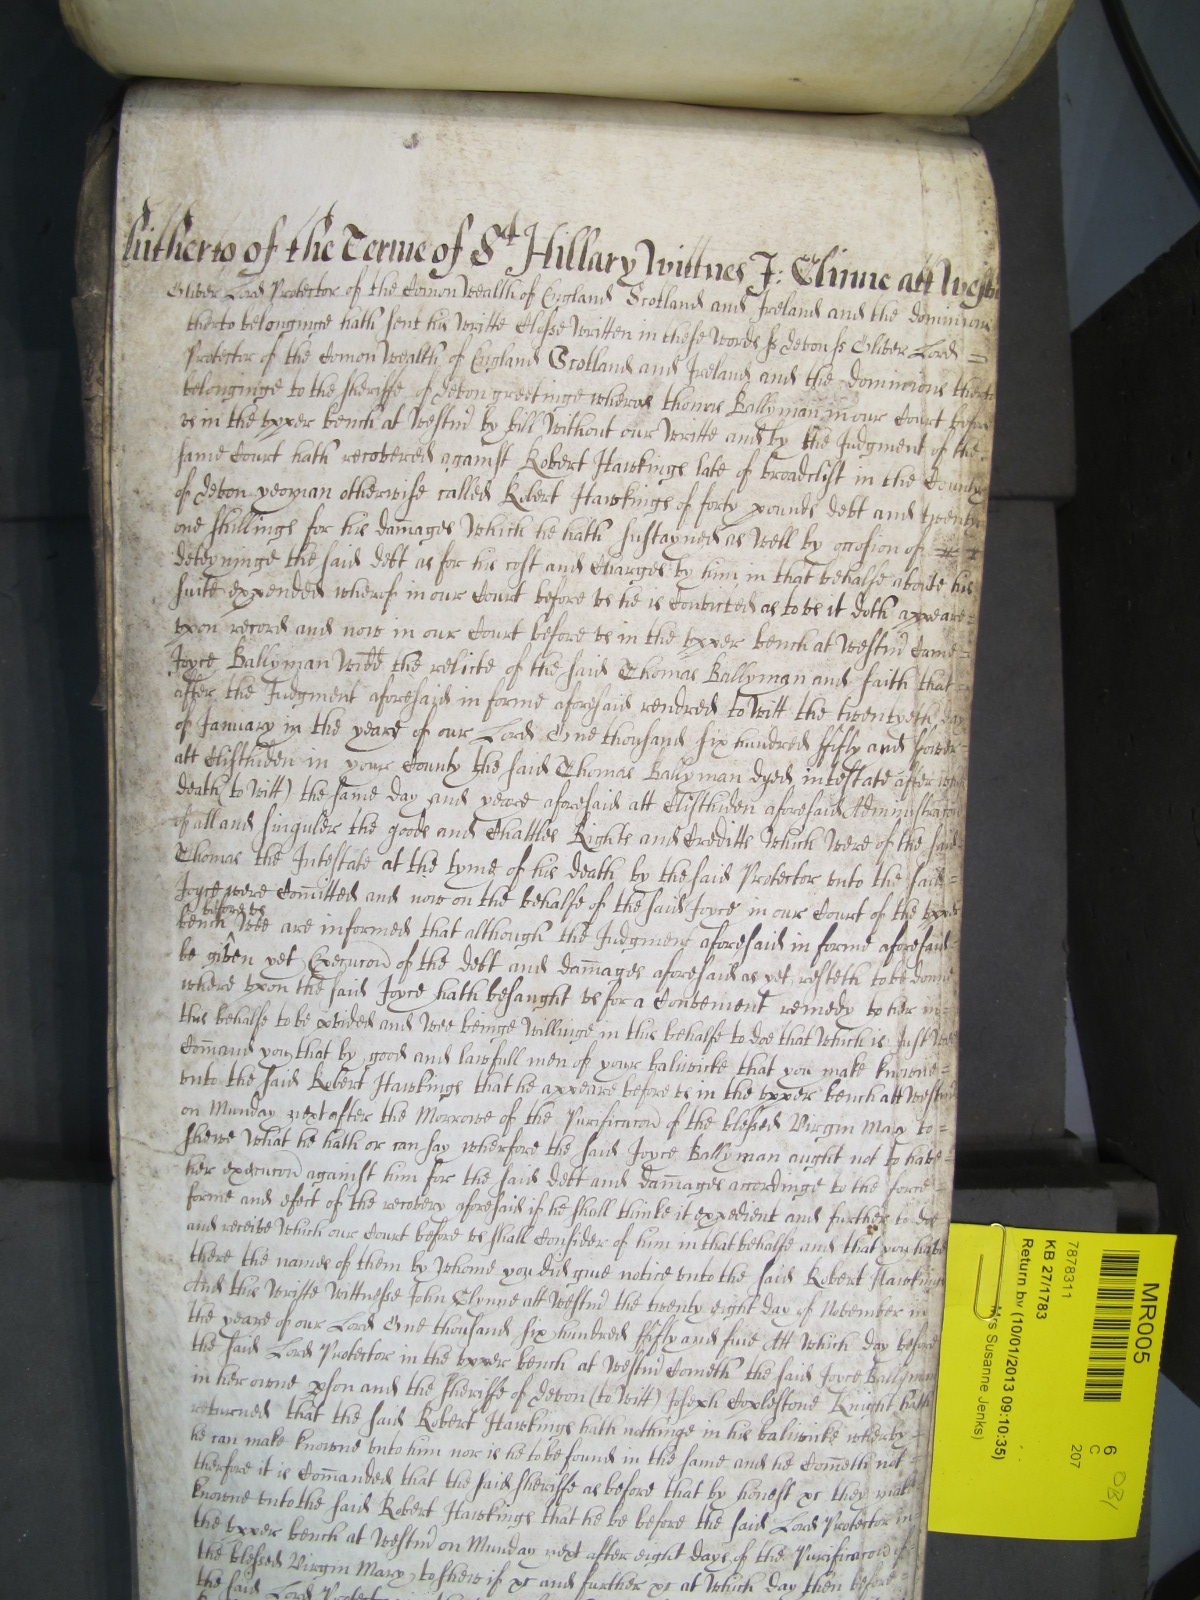 hitherto of the Terme of St Hillary Wittnes J: Clinne att Westm
Oliver Lord Protector of the Comon Wealth of England Scotland and Ireland and the dominions
therto belonginge hath sent his Writte Closse Written in these Words ss devon ss Oliver Lord =
Protector of the Comon Wealth of England Scotland and Ireland and the dominions therto
belonginge to the sheriffe of devon greetinge wheras thomas Ballyman in our Court before
us in the upper bench at Westm by bill Without our Writte and by the Judgment of the
same Court hath recovered against Robert Hawkings late of broadclist in the County
of devon yeoman otherwise called Robert Hawkings of forty pounds debt and twenty
one shillings for his damages Which he hath sustayned as Well by occosion of
deteyninge the said debt as for his cost and Charges by him in that behalfe aboute his
suite expended wherof in our Court before us he is Convicted as to us it doth appeare =
upon record and now in our Court before us in the upper bench at Westm Came =
Joyce Ballyman Widd the relicte of the said Thomas Ballyman and saith that =
after the Judgment aforesaid in forme aforesaid rendred to Witt the twentyeth day
of January in the yeare of our Lord One thousand six hundred fifty and fower =
att Clisthiden in your County the said Thomas Ballyman dyed intestate after whose
death (to Witt) the same day and yeare aforesaid att Clisthiden aforesaid Administracon
of all and singuler the goods and Chattles Rights and Creditts Which Were of the said
Thomas the Intestate at the tyme of his death by the said Protector unto the said =
Joyce were Comitted and now on the behalfe of the said Joyce in our Court of the upper
before us
bench Wee are informed that although the Judgment aforesaid in forme aforesaid =
be given yet Execucon of the debt and damages aforesaid as yet resteth to be donne
where upon the said Joyce hath besaught us for a Convenient remedy to her in =
this behalfe to be pvided and Wee beinge Willinge in this behalfe to doe that Which is Just Wee
Comand you that by good and lawfull men of your baliwicke that you make knowne =
unto the said Robert Hawkings that he appeare before us in the upper bench att Westm
on Munday next after the Morrowe of the Purificacon of the blessed Virgin Mary to =
shewe What he hath or can say wherfore the said Joyce Ballyman aught not to have =
her execucon against him for the said debt and damages accordinge to the force =
forme and efect of the recovery aforesaid if he shall thinke it expedient and further to doe
and receive Which our Court before us shall Consider of him in that behalfe and that you have
there the names of them by Whome you did give notice unto the said Robert Hawkings
And this Writte Wittnesse John Clynne att Westm the twenty eight day of November in
the yeare of our Lord One thousand six hundred fifty and five Att Which day before
the said Lord Protector in the upper bench at Westm Cometh the said Joyce Ballyman
in her owne pson and the sheriffe of devon (to Witt) Joseph Coplestone Knight hath
returned that the said Robert Hawkings hath nothinge in his baliwicke wherby =
he can make knowne unto him nor is he to be found in the same and he Cometh not =
therfore it is Comanded that the said sheriffe as before that by honest xc they make
knowne unto the said Robert Hawkings that he be before the said Lord Protector in
the upper bench at Westm on Munday next after eight days of the Purificacon of
the blessed Virgin Mary to shew if xc and further xc at Which day then before =
the said Lord Protector
MR005
7878311
KB 27/1783
Return by (10/01/2013 09:10:35)
Mrs Susanne Jenks)
6
C
207